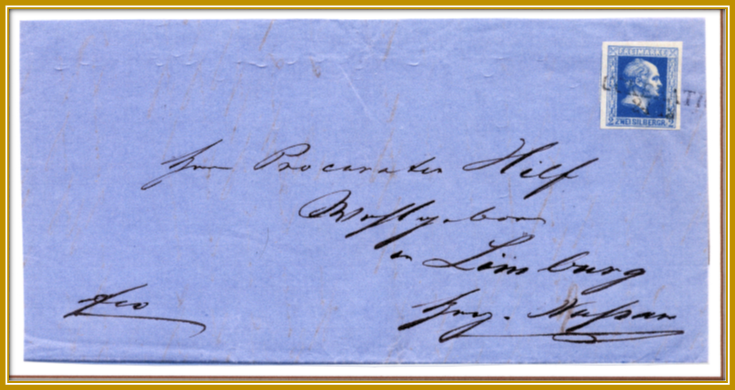 FREIMARKE
2 ZWEI SILBERGR. 2
Herrn Procurator Hilf
Wohlgeboren
in Limburg
frco
Hrz. Nassau